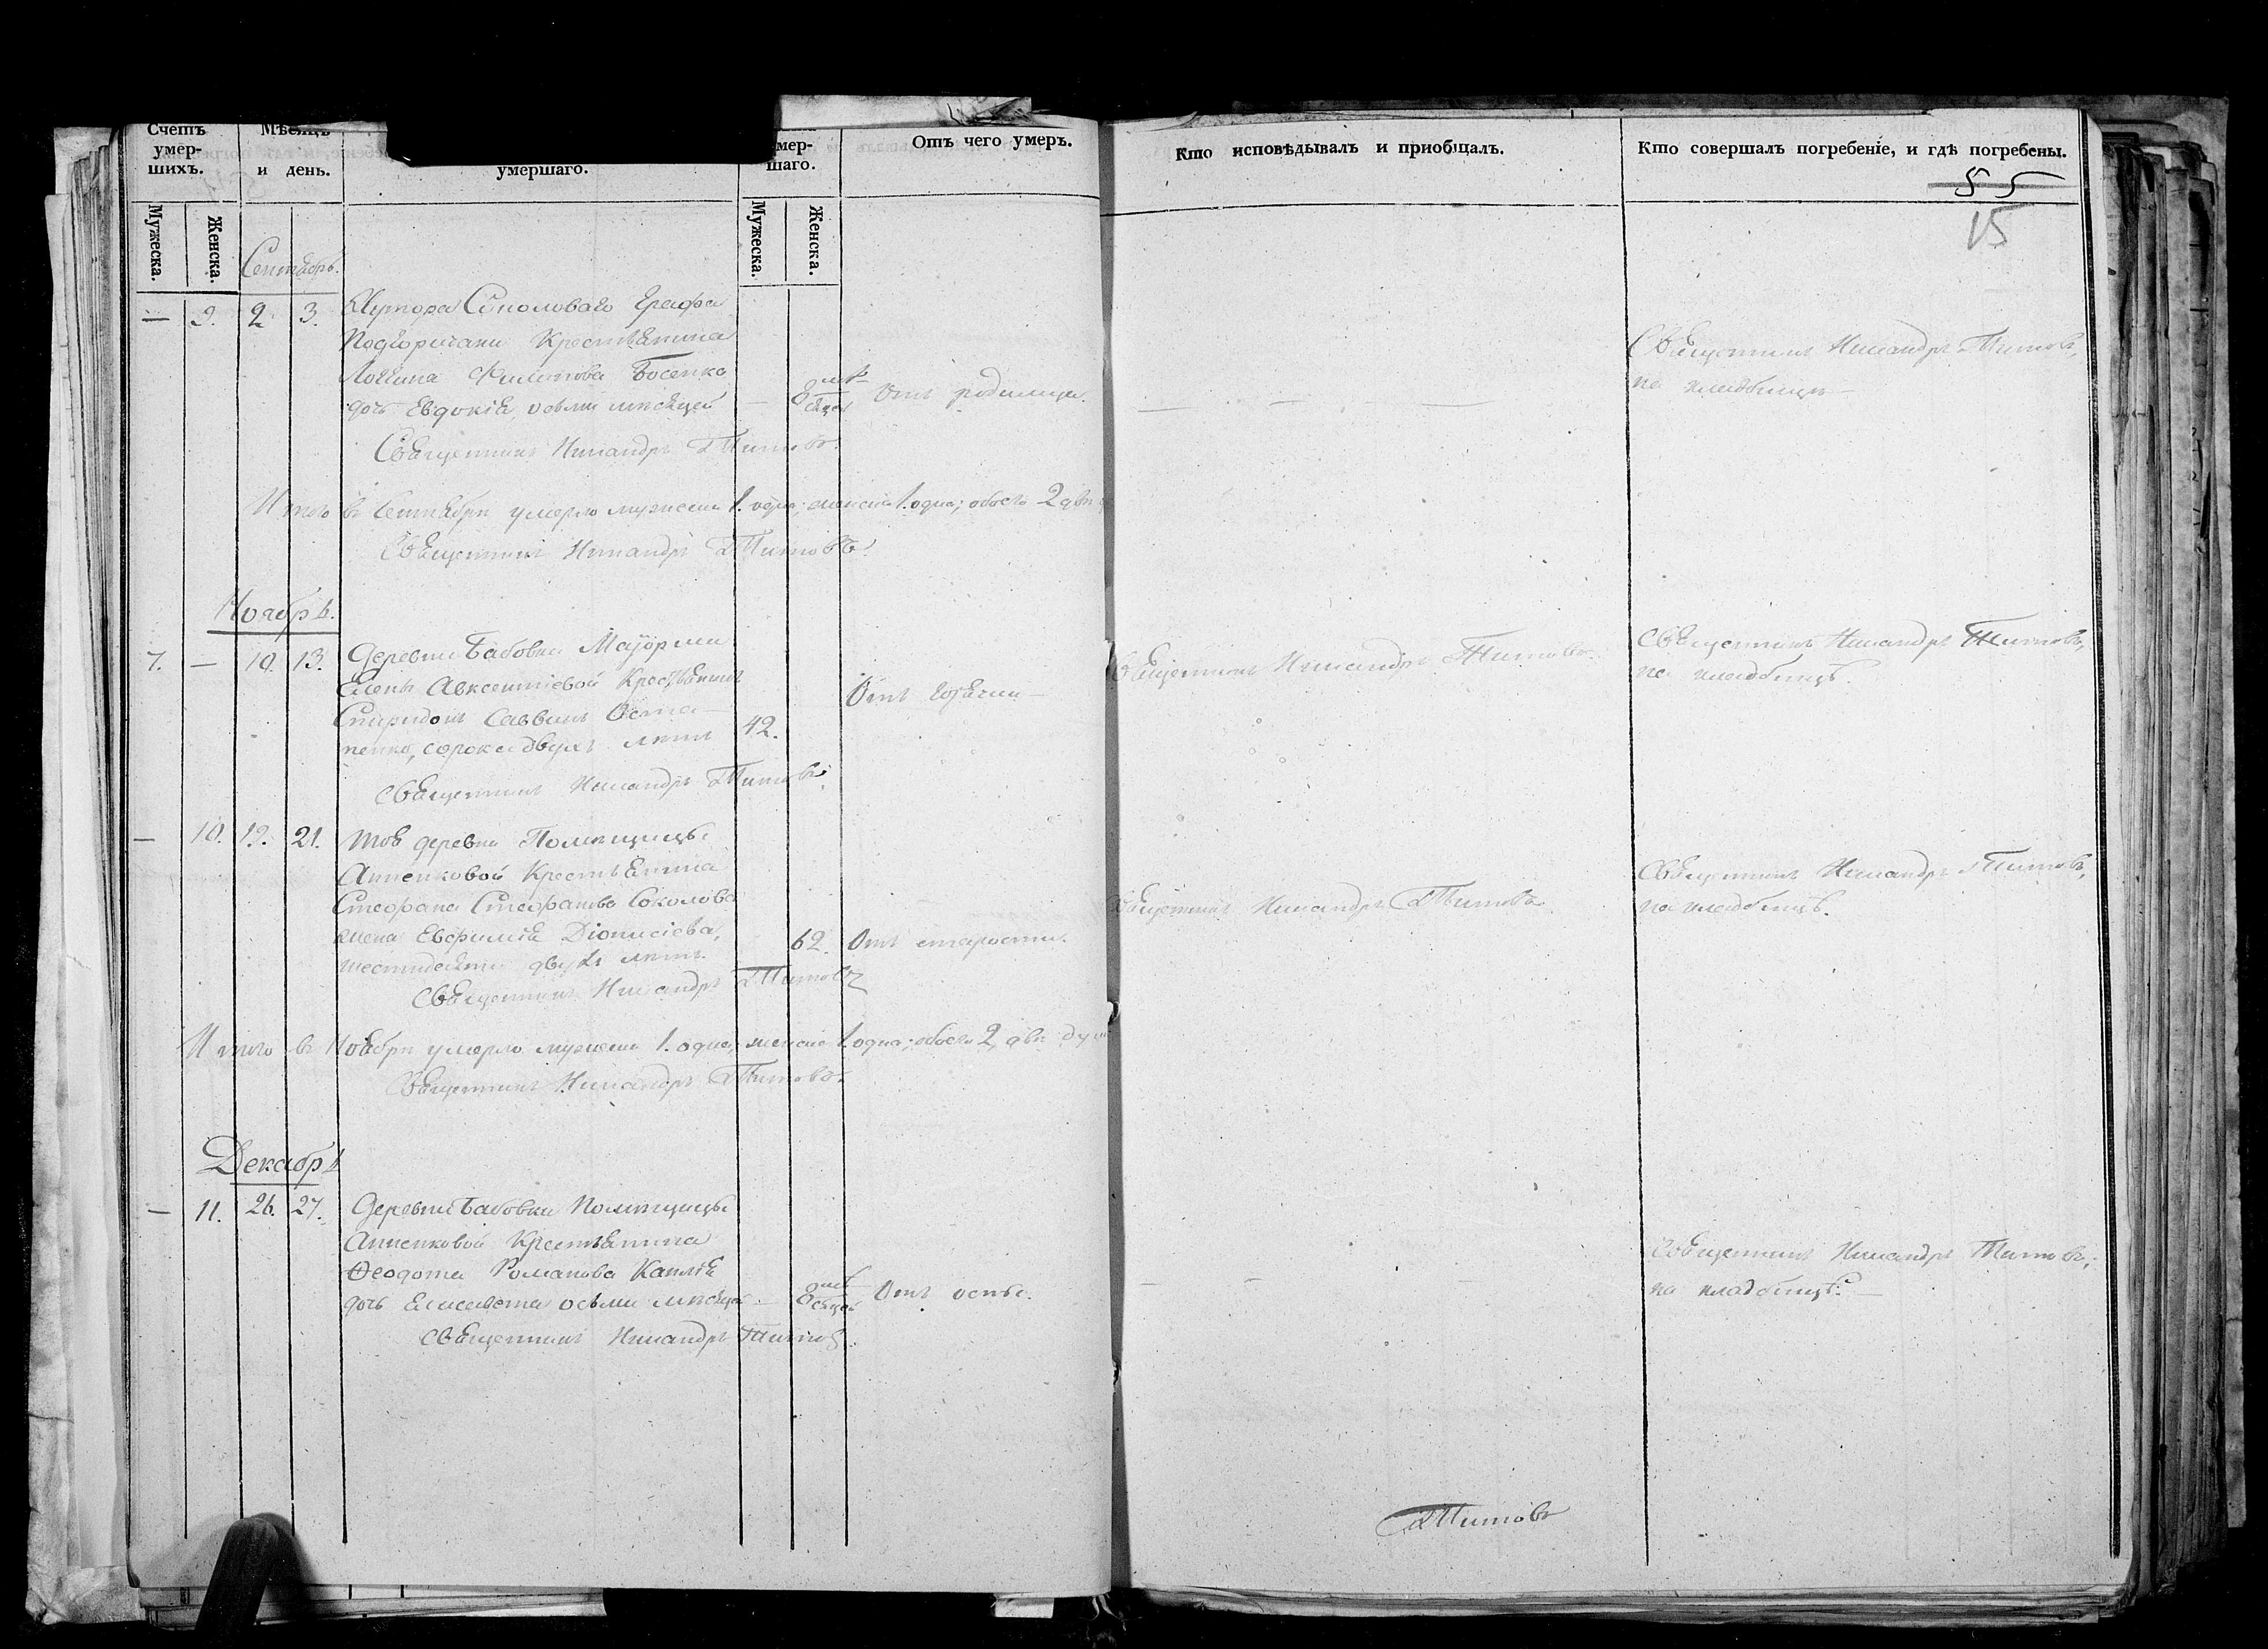 Счетъ умер-шихъ.
Мѣсяцъ и день.
умершаго.
мер-шаго.
Отъ чего умеръ.
Кто исповѣдывалъ и приобщалъ.
Кто совершалъ погребеніе, и гдѣ погребены.
55
15
Мужеска.
Женска.
Мужеска.
Женска.
Сентябрь.
— 9. 2 3. Хутора Соколоваго Графа
Подгоричани Крестьянина
Логина Филипова Босенко
дочь Евдокія осьми мѣсяцей — 8 мѣсяцей Отъ родимца.
— — —
Священникъ Никандръ Титовъ,
на кладбищѣ —
Священникъ Никандръ Титовъ.
Итого въ Сентябрѣ умерло мужеска 1. одна; женска 1. одна; обоего 2 двѣ
Священникъ Никандръ Титовъ.
Ноябрь.
7. — 10. 13. Деревни Бабовки Маіорши
Елены Авксентіевой Крестьянинъ
Спиридонъ Саввинъ Оста-
пенко, сорока двухъ лѣтъ 42. Отъ горячки —
Священникъ Никандръ Титовъ.
Священникъ Никандръ Титовъ,
на кладбищѣ.
Священникъ Никандръ Титовъ.
— 10. 19. 21. Той деревни Помѣщицы
Анненковой Крестьянина
Стефана Стефанова Соколова
жена Евфимія Діонисіева,
шестидесяти двухъ лѣтъ. 62. Отъ старости.
Священникъ Никандръ Титовъ.
Священникъ Никандръ Титовъ,
на кладбищѣ.
Священникъ Никандръ Титовъ
Итого въ Ноябрѣ умерло мужеска 1. одна, женска 1. одна; обоего 2, двѣ душ
Священникъ Никандръ Титовъ.
Декабрь
— 11. 26. 27. Деревни Бабовки Помѣщицы
Анненковой Крестьянина
Ѳеодота Романова
дочь Елисавета осьми мѣсяцей — 8 мѣсяцей Отъ оспы.
— — —
Священникъ Никандръ Титовъ,
на кладбищѣ. —
Священникъ Никандръ Титовъ.
Титовъ